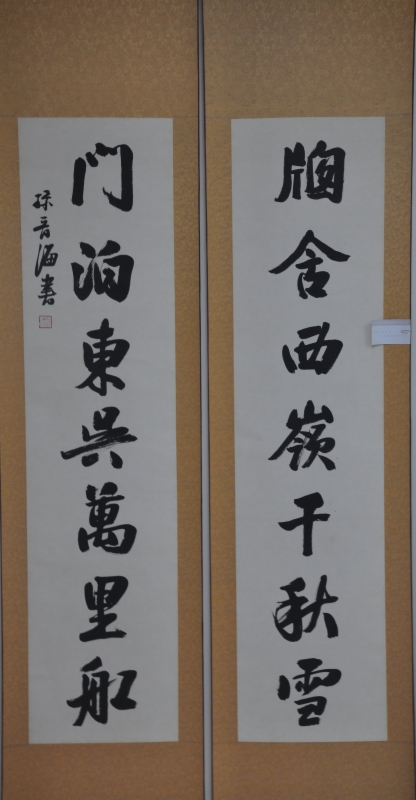 牕含西嶺千秋雪
門泊東吳萬里船
孫音海書